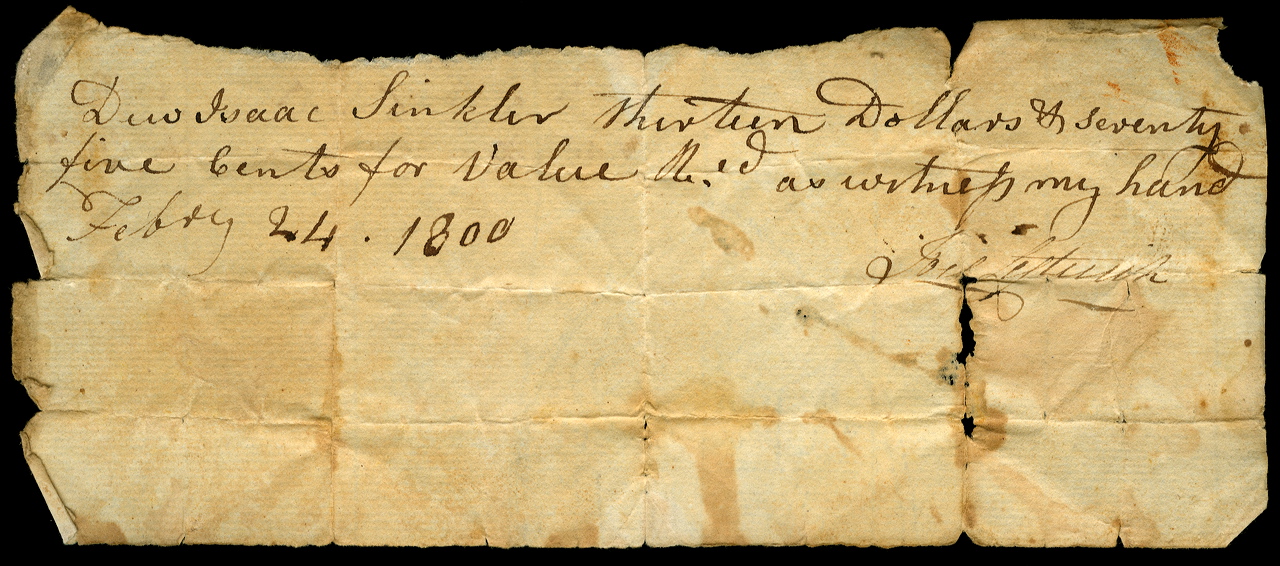 Due Isaac Sinkler thirteen Dollars & seventy
five Cents for Value Rec.ed as witness my hand
Febry 24 . 1800